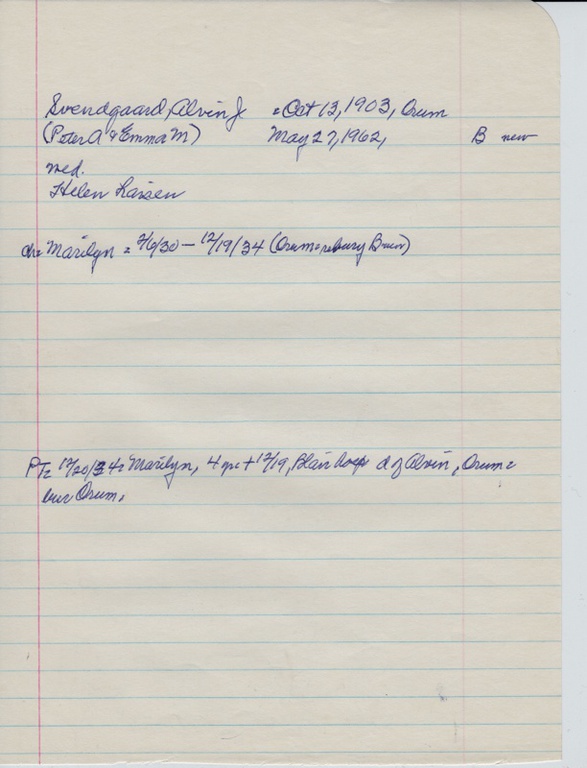 Svendgaard, Alvin J = Oct 13, 1903, Orum
(Peter A & Emma M) May 27, 1962, B new
md.
Helen Larsen
ch = Marilyn = 2/6/30 – 12/19/34 (Orum = rebury Blair)
PT = 12/20/34 = Marilyn, 4 yrs + 12/19, Blair hosp d of Alvin, Orum =
bur Orum.